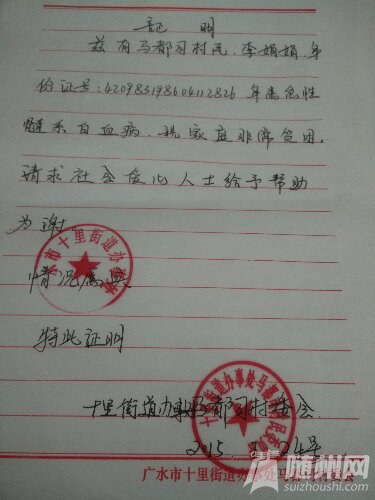 证明
兹有马都司村民,李娟娟,身
份证号:420983198604112826 患急性
髓系白血病,现家庭非常贫困,
请求社会爱心人士给予帮助
为谢
广水市十里街道办事处
情况属实
特此证明
十里街道办事处马都司村委会
2015. 24号
广水市十里街道办事处马
随州网
suizhoushi.com